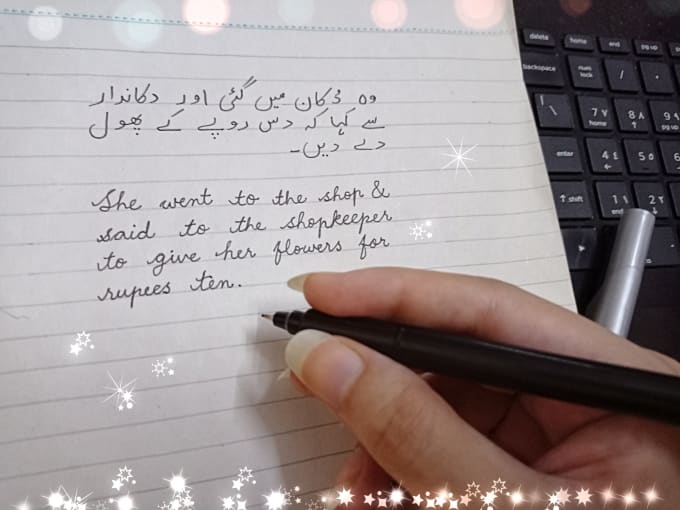 وہ دُکان میں گئی اور دکاندار
سے کہا کہ دس روپے کے پھول
دے دیں۔
She went to the shop &
said to the shopkeeper
to give her flowers for
rupees ten.
delete
home
end
pg up
backspace
num
lock
/
7 ٧
home
8 ٨
9 ٩
pg up
\
enter
4 ٤
5 ٥
shift
1 ١
end
2 ٢